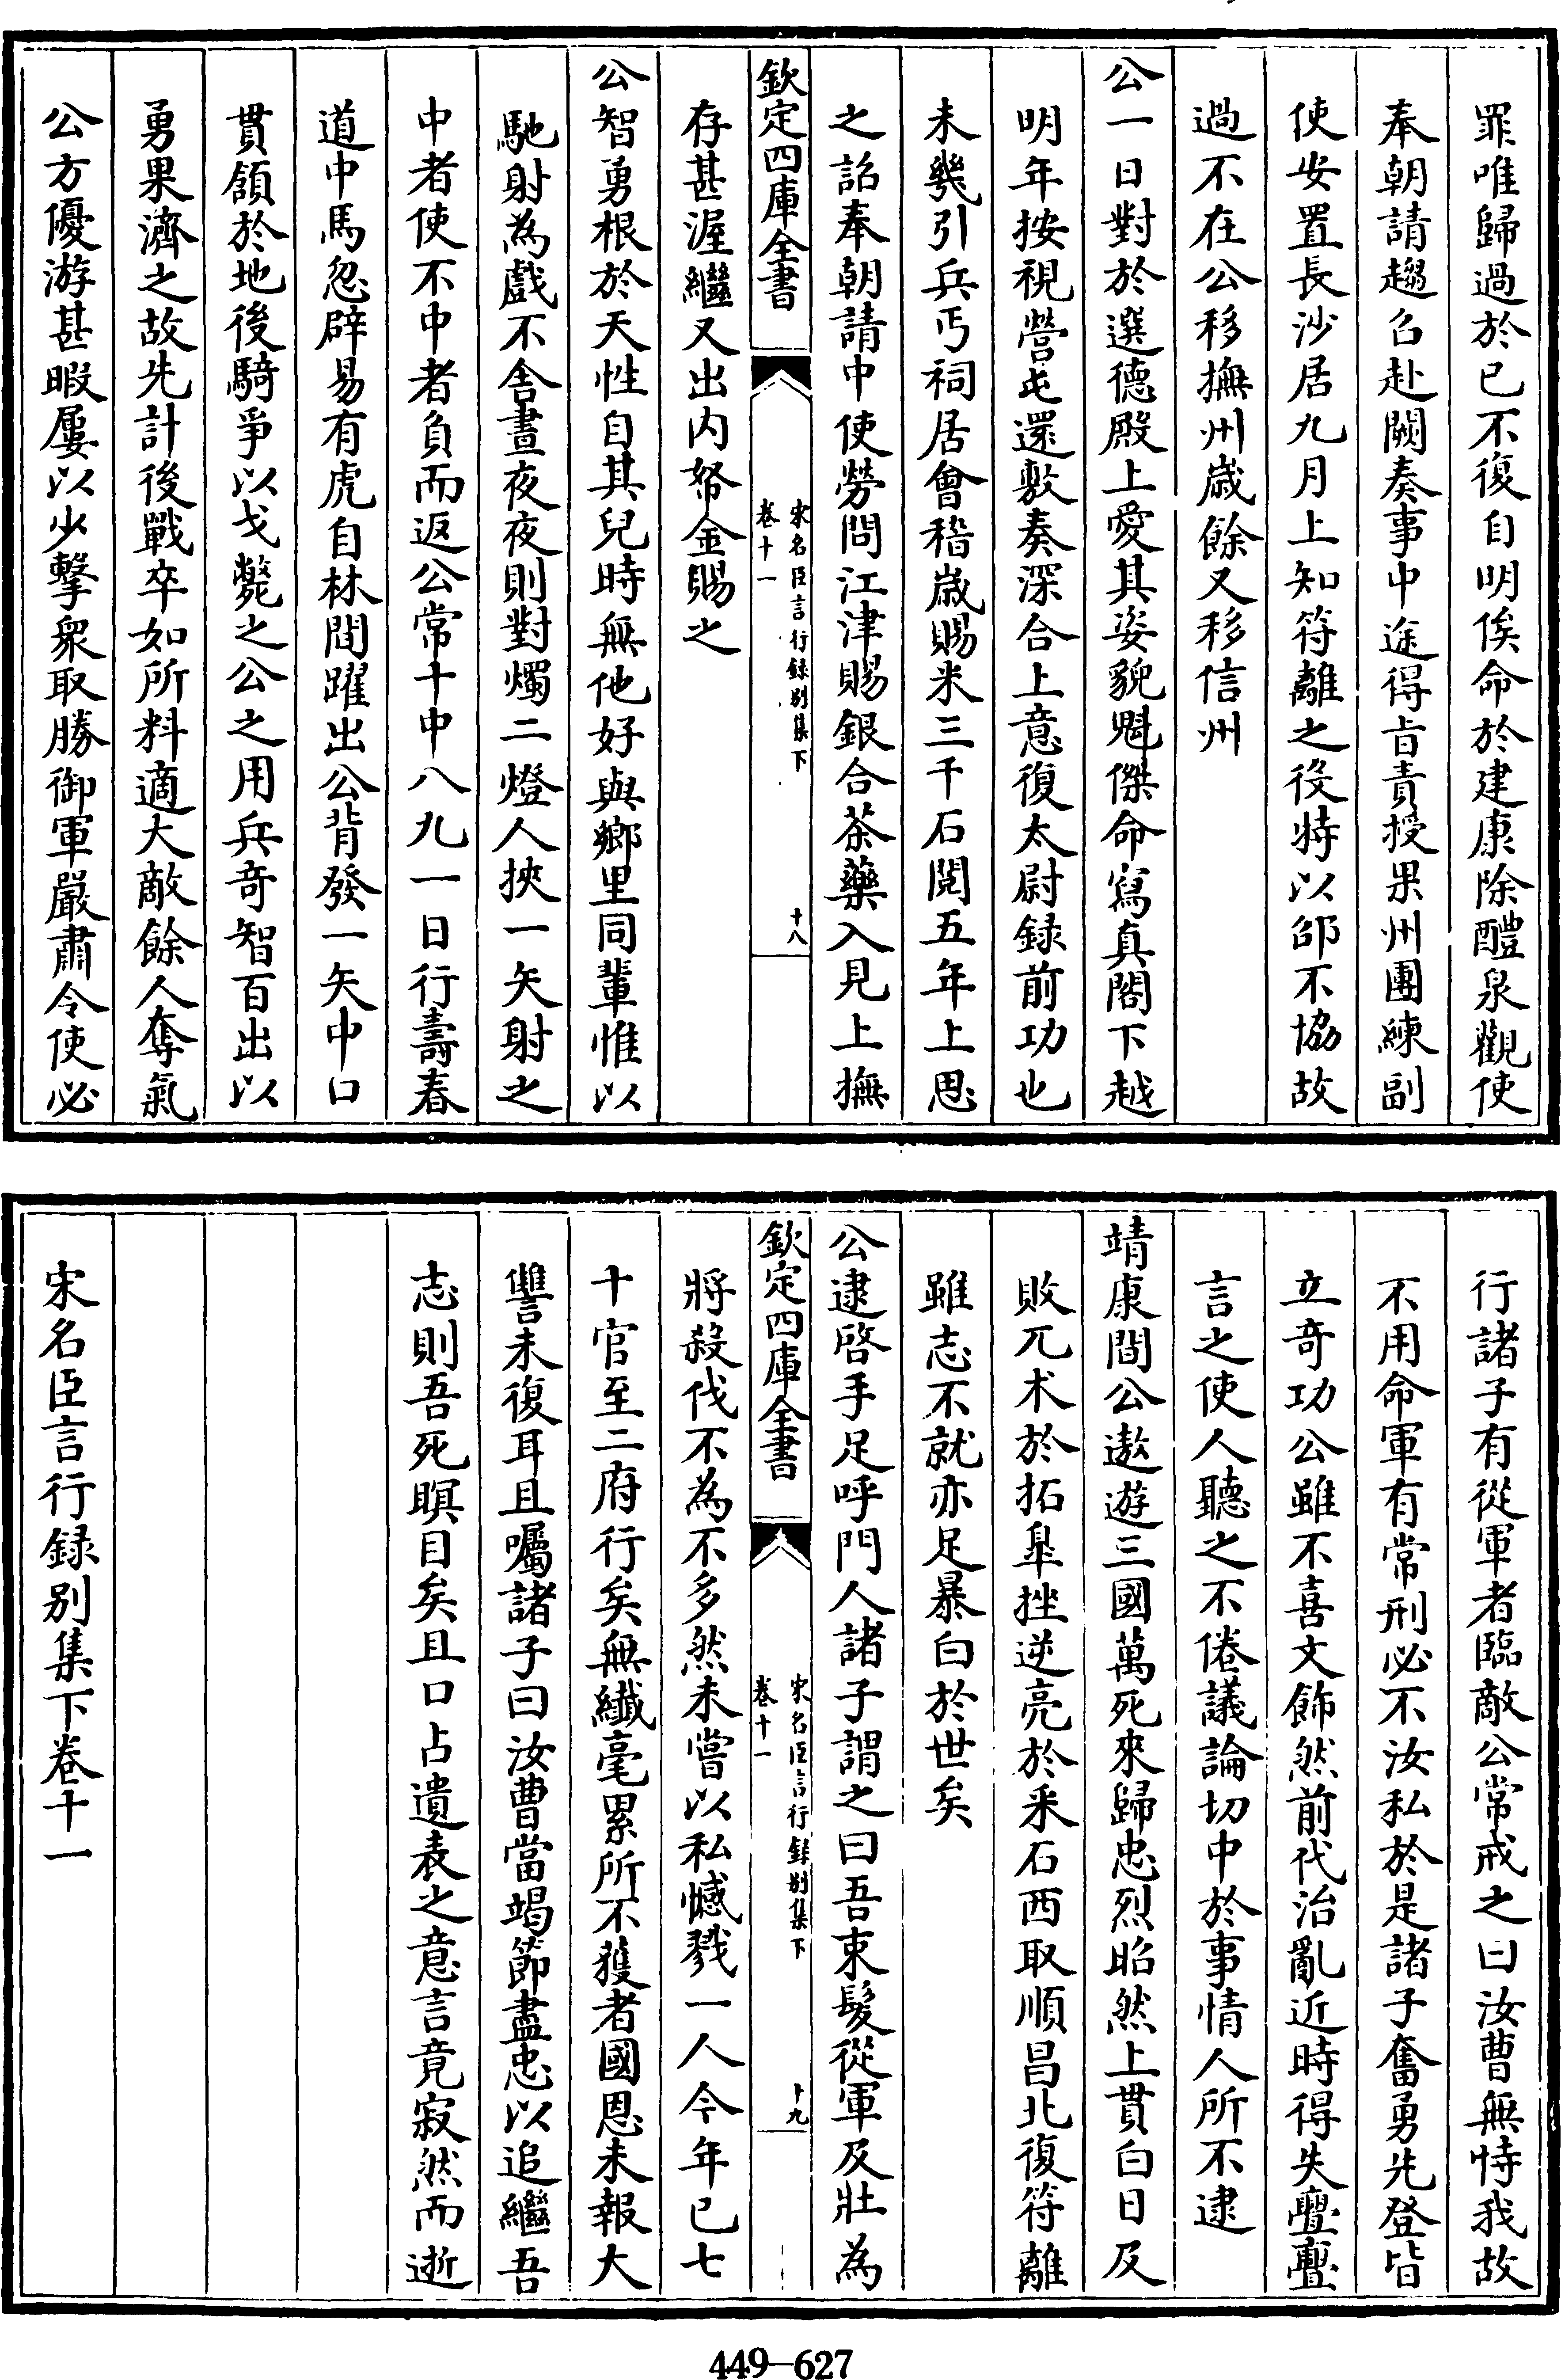 罪唯歸過於己不復自明俟命於建康除醴泉觀使
奉朝請趨召赴闕奏事中途得旨責授果州團練副
使安置長沙居九月上知符離之役特以邵不協故
過不在公移撫州歲餘又移信州
公一日對於選德殿上愛其姿貌魁傑命寫真閣下越
明年按視營屯還敷奏深合上意復太尉録前功也
未幾引兵丐祠居會稽歲賜米三千石閲五年上思
之詔奉朝請中使勞問江津賜銀合茶藥入見上撫
欽定四庫全書
宋名臣言行録别集下
卷十一
十八
存甚渥繼又出内帑金賜之
公智勇根於天性自其兒時無他好與鄉里同輩惟以
馳射為戲不舍晝夜夜則對燭二燈人挾一矢射之
中者使不中者負而返公常十中八九一日行壽春
道中馬忽辟易有虎自林間躍出公背發一矢中口
貫頷於地後騎爭以戈斃之公之用兵奇智百出以
勇果濟之故先計後戰卒如所料適大敵餘人奪氣
公方優游甚暇屢以少擊衆取勝御軍嚴肅令使必
行諸子有從軍者臨敵公常戒之曰汝曹無恃我故
不用命軍有常刑必不汝私於是諸子奮勇先登皆
立奇功公雖不喜文飾然前代治亂近時得失亹亹
言之使人聽之不倦議論切中於事情人所不逮
靖康間公遨遊三國萬死來歸忠烈昭然上貫白日及
敗兀朮於拓臯挫逆亮於釆石西取順昌北復符離
雖志不就亦足暴白於世矣
公逮啓手足呼門人諸子謂之曰吾束髮從軍及壯為
欽定四庫全書
宋名臣言行録别集下
卷十一
十九
將殺伐不為不多然未嘗以私憾戮一人今年已七
十官至二府行矣無纖毫累所不獲者國恩未報大
讐未復耳且囑諸子曰汝曹當竭節盡忠以追繼吾
志則吾死瞑目矣且口占遺表之意言竟寂然而逝
宋名臣言行録别集下卷十一
449—627